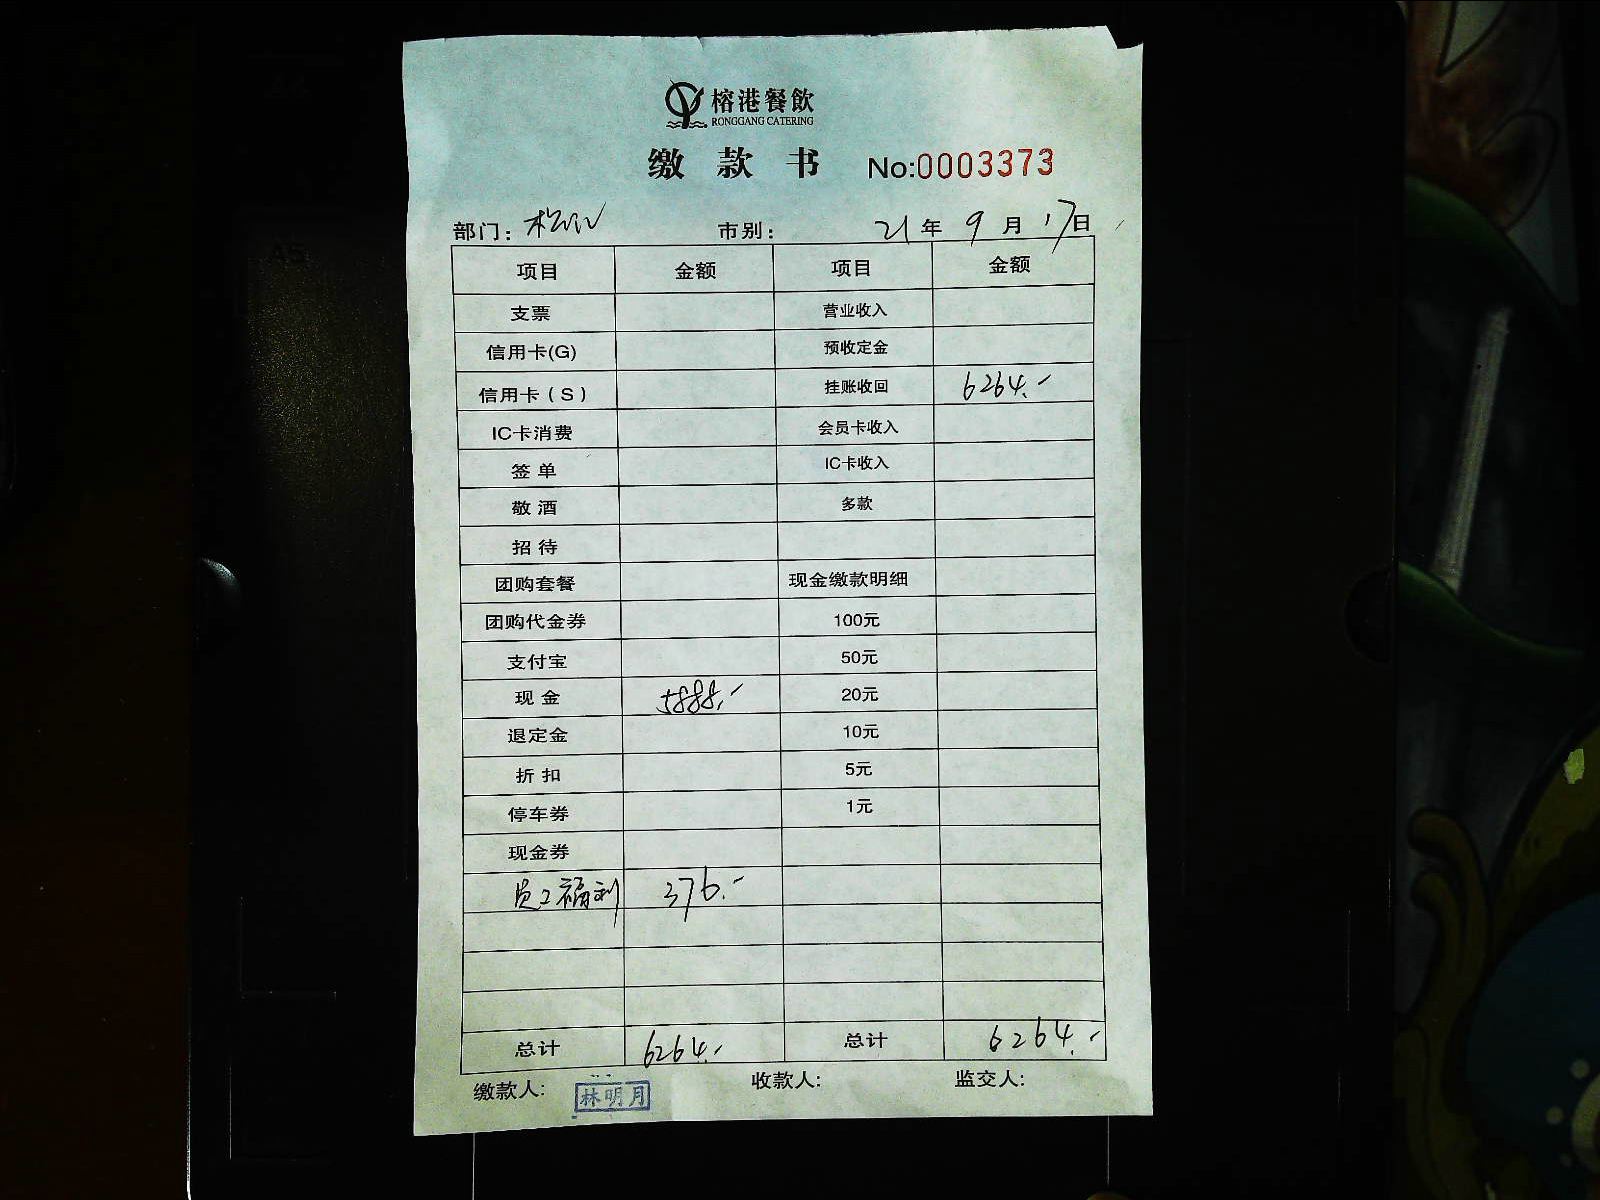 榕港餐飲
RONGGANG CATERING
缴款书 No:0003373
部门: 市别: 21年9月17日
项目 金额 项目 金额
支票 营业收入
信用卡(G) 预收定金
信用卡(S) 挂账收回 6264.-
IC卡消费 会员卡收入
签单 IC卡收入
敬酒 多款
招待
团购套餐 现金缴款明细
团购代金券 100元
支付宝 50元
现金 5888.- 20元
退定金 10元
折扣 5元
停车券 1元
现金券
员工福利 376.-
总计 6264.- 总计 6264.-
缴款人: 林明月 收款人: 监交人:
A5